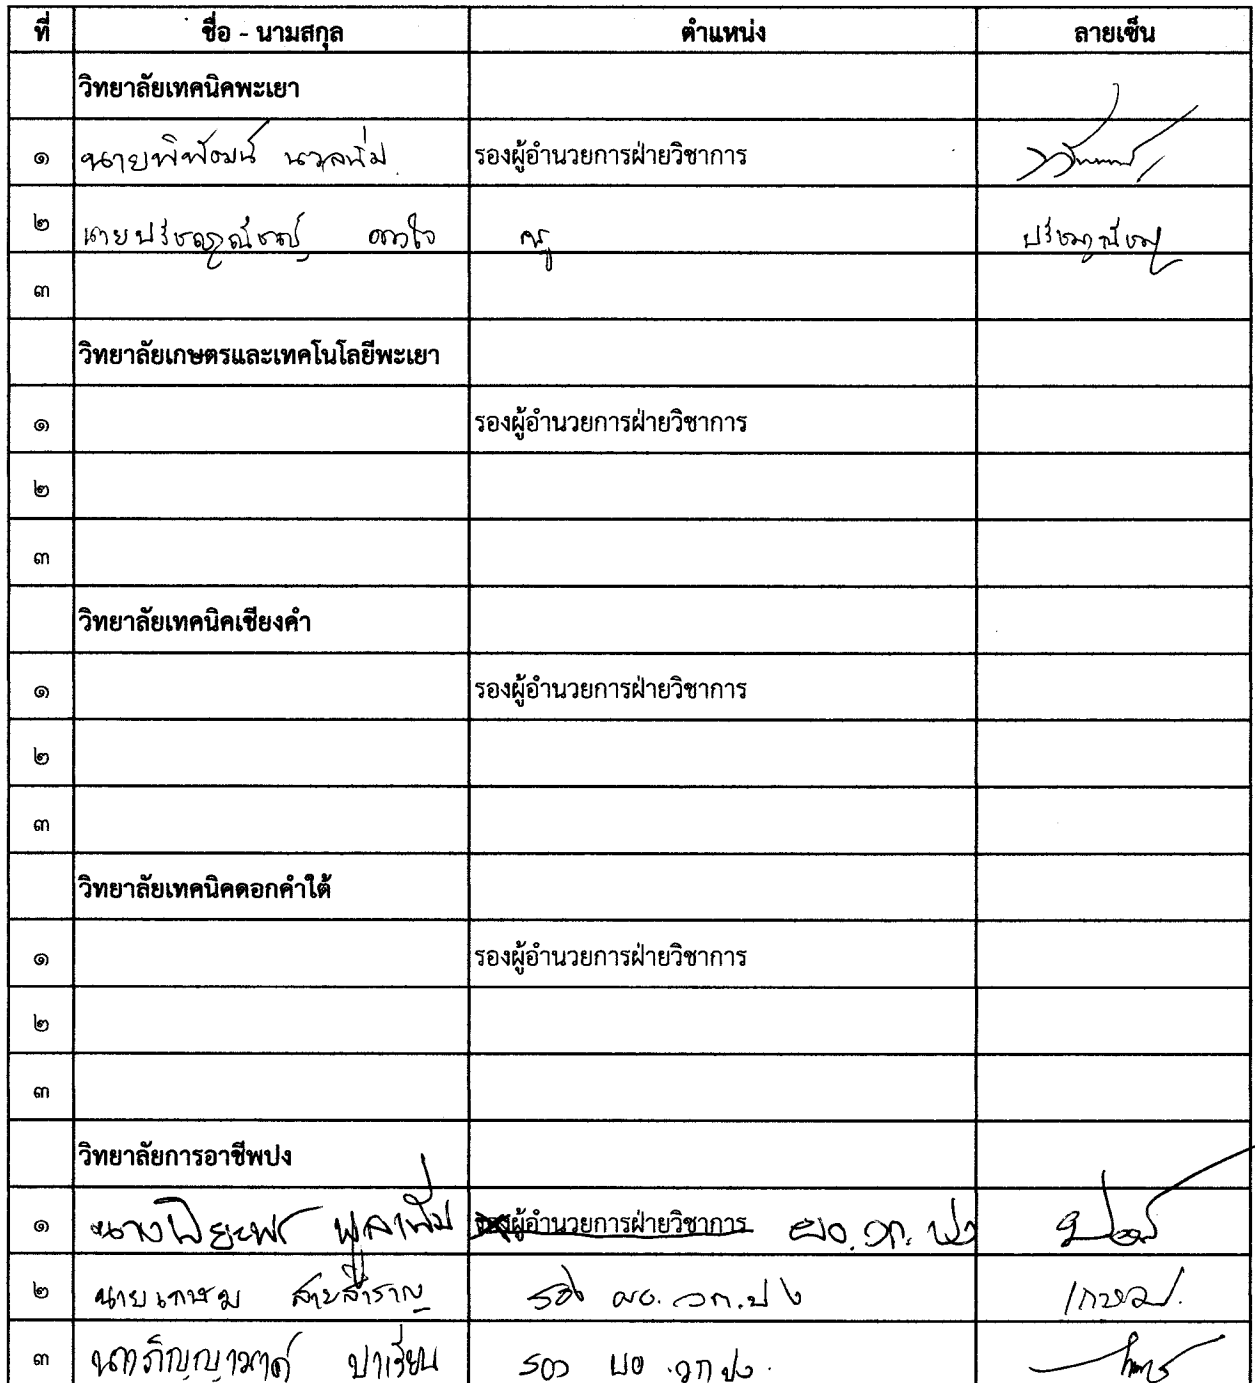 ที่ ชื่อ - นามสกุล ตำแหน่ง ลายเซ็น
วิทยาลัยเทคนิคพะเยา
๑ นายพิพัฒน์ นวลนิ่ม รองผู้อำนวยการฝ่ายวิชาการ
๒ นายปรัชญาณัชญ์ ครู ปรัชญาณัชญ์
๓
วิทยาลัยเกษตรและเทคโนโลยีพะเยา
๑ รองผู้อำนวยการฝ่ายวิชาการ
๒
๓
วิทยาลัยเทคนิคเชียงคำ
๑ รองผู้อำนวยการฝ่ายวิชาการ
๒
๓
วิทยาลัยเทคนิคดอกคำใต้
๑ รองผู้อำนวยการฝ่ายวิชาการ
๒
๓
วิทยาลัยการอาชีพปง
๑ นางปิยะพร พูลเพิ่ม รองผู้อำนวยการฝ่ายวิชาการ ผอ. วก. ปง
๒ นายเกษม สายสำราญ รอง ผอ. วก. ปง เกษม
๓ ปาเรียน รอง ผอ. วก ปง.